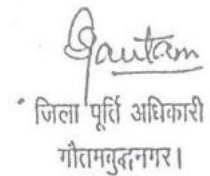 Gautam
जिला पूर्ति अधिकारी
गौतमबुद्धनगर।